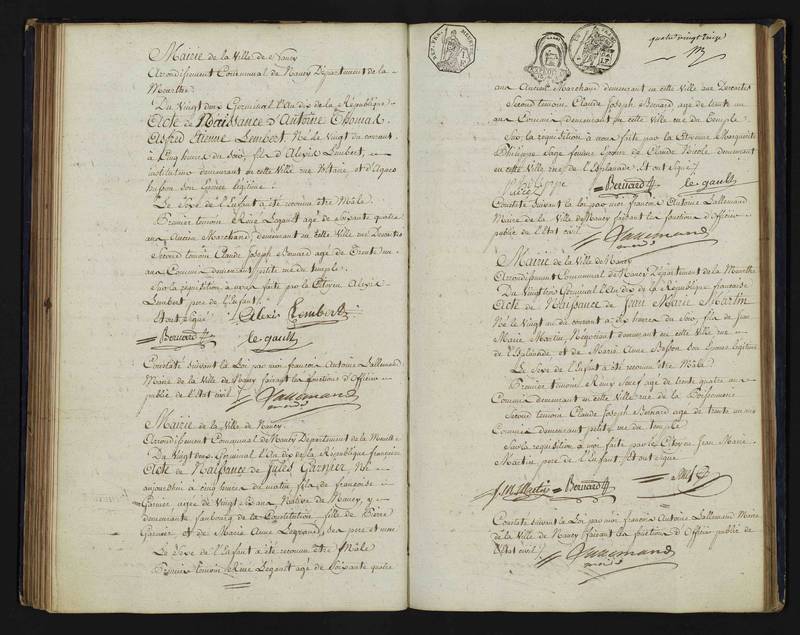 Mairie de la Ville de Nancy
Arrondissement Communal de Nancy Département de la
Meurthe
Du Vingt deux Germinal l'An dix de la République
Acte de Naissance d'Antoine Thomas
Alfred Etienne Lembert, Né le Vingt du courant
à Cinq heures du Soir, fils d'Alexis Lembert,
instituteur demeurant en cette Ville rue
husson son Epouse légitime
Le Sexe de l'Enfant a été reconnu être Mâle
Premier temoin René Legault agé de Soixante quatre
ans Ancien Marchand, demeurant en cette Ville rue Descartes
Second temoin Claude Joseph Bernard agé de Trente un
ans Commis demeurant petite rue du temple
Sur la requisition à nous faite par le Citoyen Alexis
Lembert pere de l'Enfant
Et ont Signé Alexis Lembert
Bernard le gault
Constaté suivant la Loi par moi françois Antoine Lallemand
Maire de la Ville de Nancy faisant les fonctions d'Officier
public de l'Etat civil Lallemand
Mairie de la Ville de Nancy
Arrondissement Communal de Nancy Département de la Meurthe
Du Vingt deux Germinal l'An dix de la République française
Acte de Naissance de Jules Garnier Né
aujourd'hui à cinq heures du matin, fils de françoise
Garnier agée de Vingt ans Native de Nancy, y
demeurante faubourg de la Constitution fille de Pierre
Garnier et de Marie Anne Legrand, ses pere et mere
Le Sexe de l'Enfant a été reconnu être Mâle
Premier temoin René Legault agé de Soixante quatre
quatre vingt treize
ans Ancien Marchand demeurant en cette Ville rue Descartes
Second temoin Claude Joseph Bernard, agé de trente un
ans Commis demeurant en cette Ville rue du Temple
Sur la requisition à nous faite par la Citoyenne Marguerite
Philippe Sage femme Epouse de Claude Nicole demeurant
en cette Ville rue de l'Esplanade. Et ont Signé
Philippe
Bernard le gault
Constaté suivant la Loi par moi françois Antoine Lallemand
Maire de la Ville de Nancy faisant les fonctions d'Officier
public de l'Etat civil Lallemand
Mairie de la Ville de Nancy
Arrondissement Communal de Nancy Département de la Meurthe
Du Vingt trois Germinal l'An dix de la République française
Acte de Naissance de Jean Marie Martin
Né le Vingt un du courant à heures du Soir, fils de Jean
Marie Martin, Négociant demeurant en cette Ville rue
de l'Esplanade et de Marie Anne Basson Son Epouse légitime
Le Sexe de l'Enfant a été reconnu être Mâle
Premier temoin agé de trente quatre ans
Commis demeurant en cette Ville rue de la Poissonnerie
Second temoin Claude Joseph Bernard agé de trente un ans
Commis demeurant petite rue du temple
Sur la requisition à moi faite par le Citoyen Jean Marie
Martin pere de l'Enfant, Et ont Signé
J. M. Martin Bernard
Constaté suivant la Loi par moi françois Antoine Lallemand Maire
de la Ville de Nancy faisant les fonctions d'Officier public de
l'Etat civil Lallemand